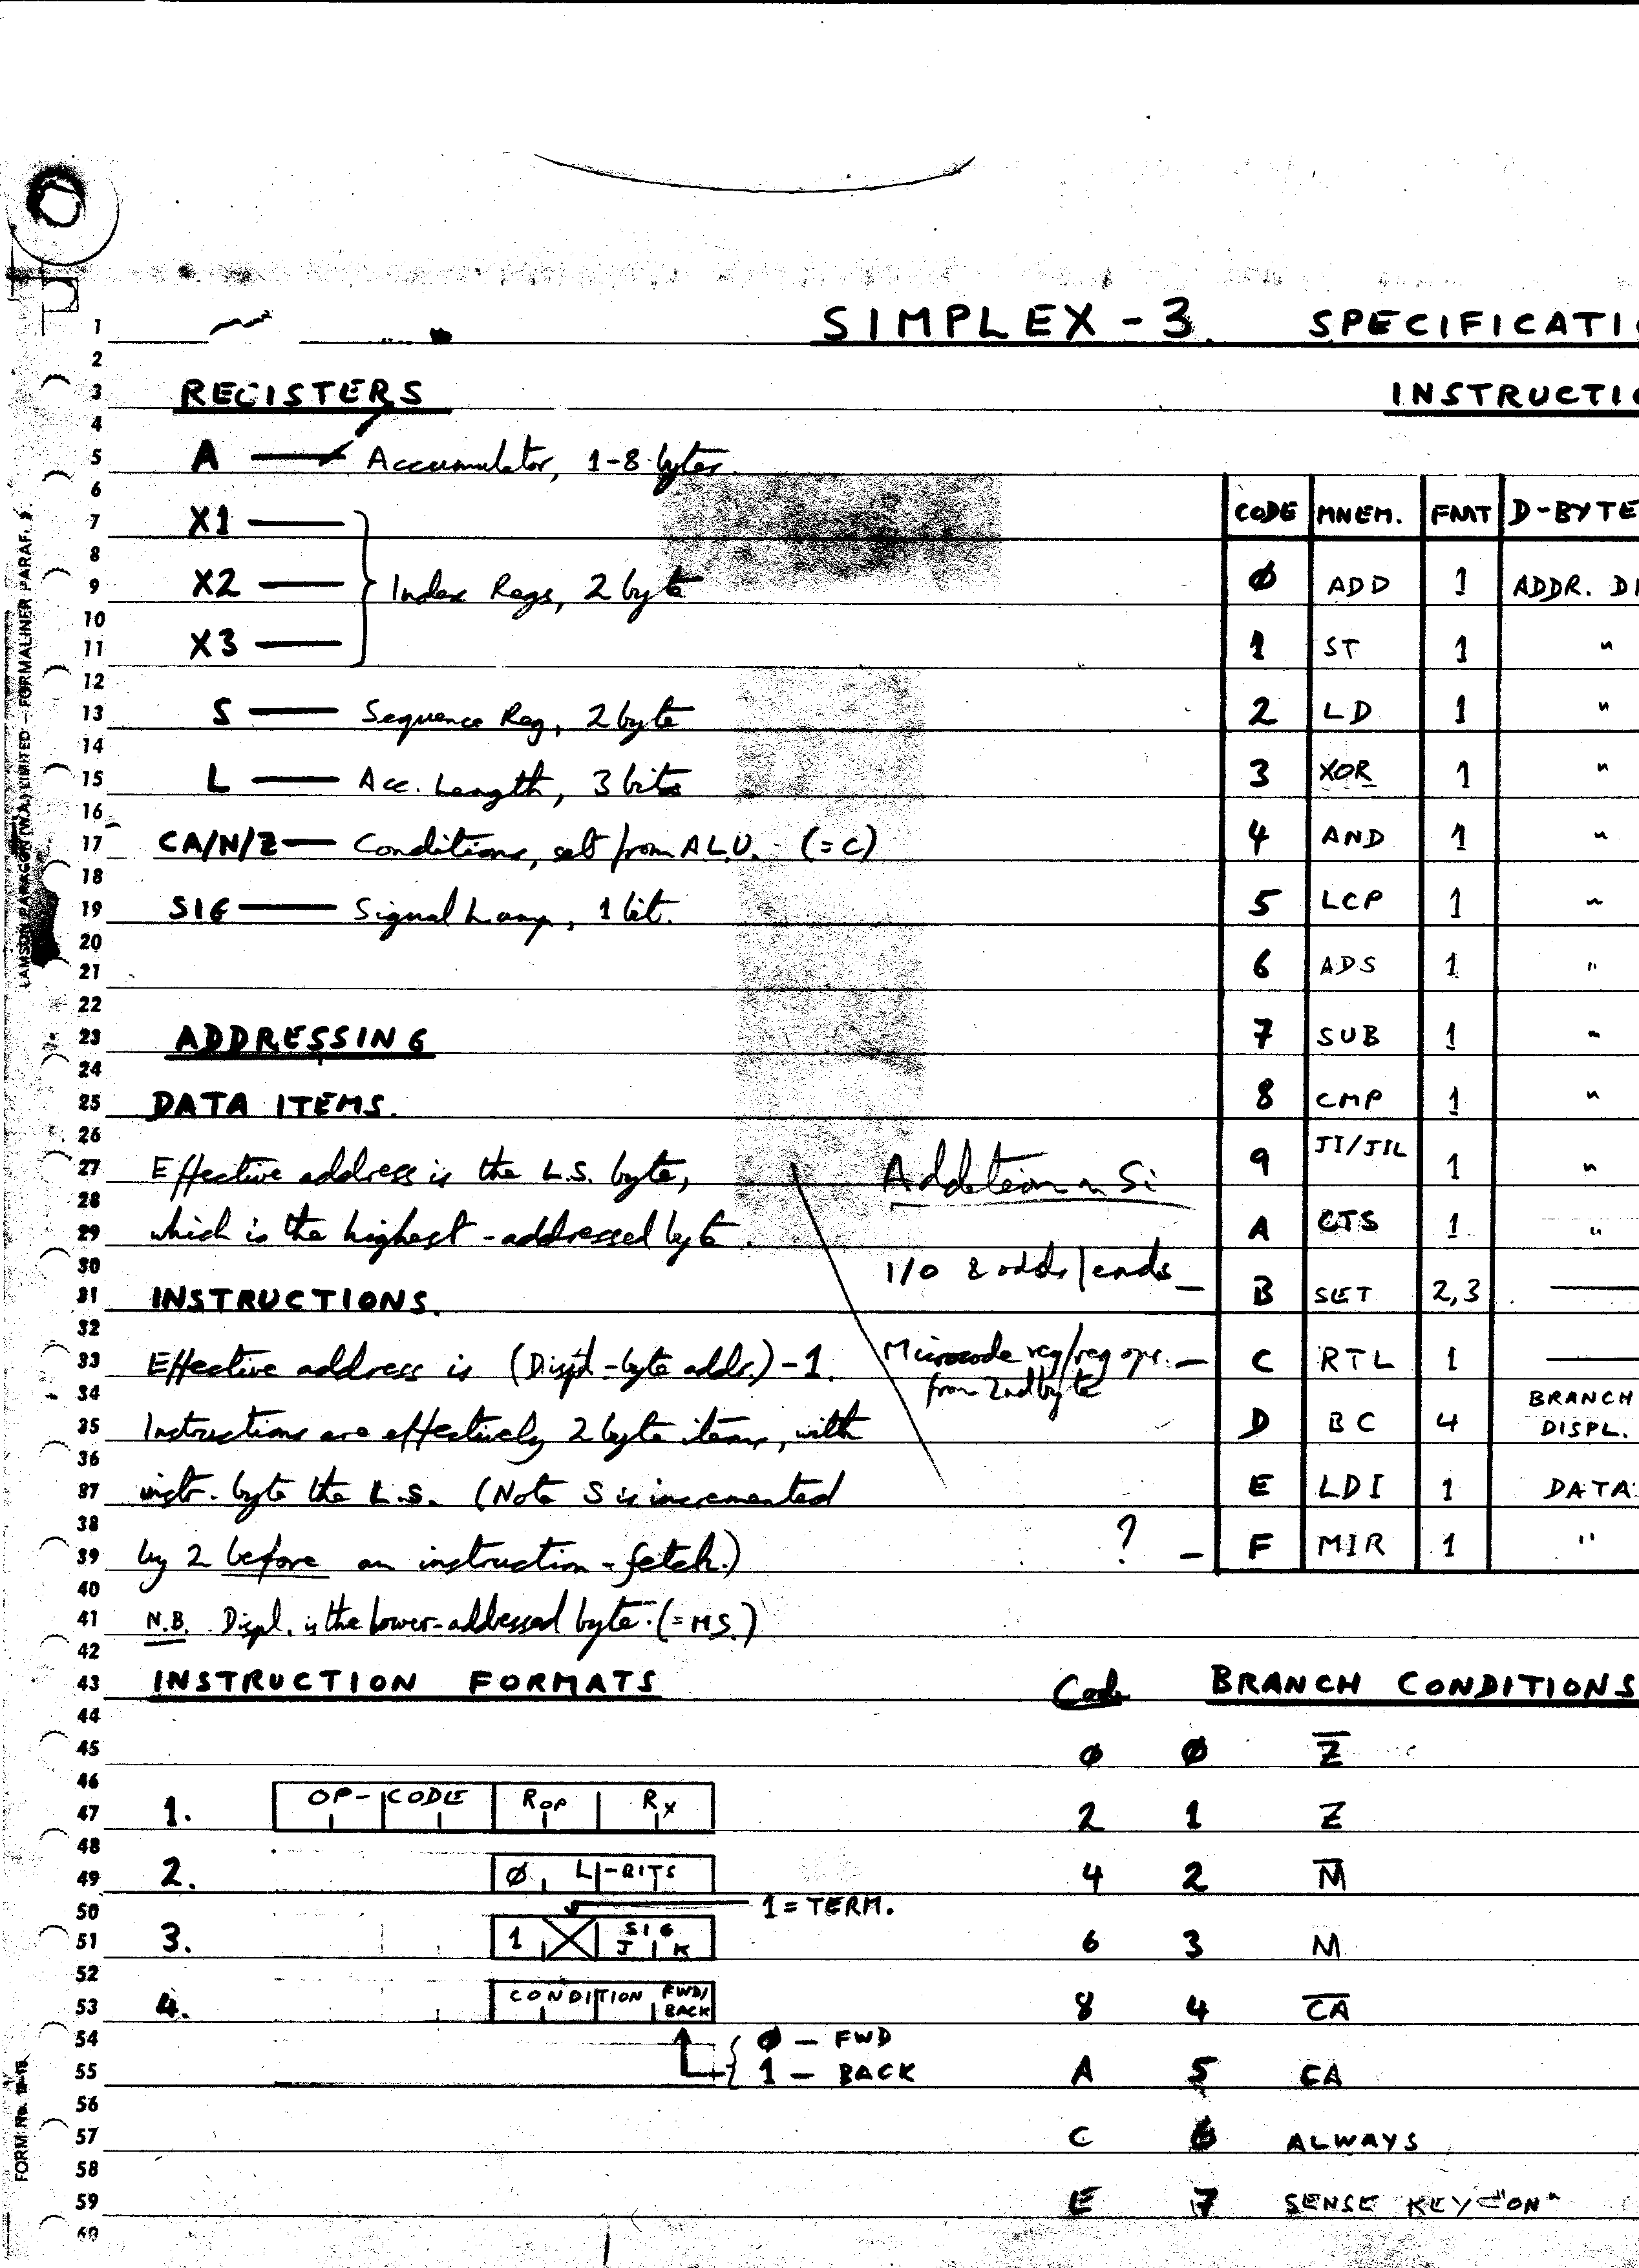 SIMPLEX-3. SPECIFICATI
REGISTERS
A — Accumulator, 1-8 bytes.
X1 —
X2 — Index Regs, 2 byte
X3 —
S — Sequence Reg, 2 byte
L — Acc. Length, 3 bits
CA/N/Z — Conditions, set from A.L.U. (=C)
SIG — Signal Lamp, 1 bit.
ADDRESSING
DATA ITEMS.
Effective address is the L.S. byte,
which is the highest-addressed byte.
INSTRUCTIONS.
Effective address is (Displ-byte addr.)-1.
Instructions are effectively 2 byte items, with
instr. byte the L.S. (Note S is incremented
by 2 before an instruction-fetch.)
N.B. Displ. is the lower-addressed byte. (=MS.)
Addition in Si
I/O & odds/ends —
Microcode reg/reg ops. —
from 2nd byte
? —
INSTRUCTI
CODE MNEM. FMT D-BYTE
Ø ADD 1 ADDR. DI
1 ST 1 "
2 LD 1 "
3 XOR 1 "
4 AND 1 "
5 LCP 1 "
6 ADS 1 "
7 SUB 1 "
8 CMP 1 "
9 JI/JIL 1 "
A CTS 1 "
B SET 2,3 —
C RTL 1 —
D BC 4 BRANCH DISPL.
E LDI 1 DATA
F MIR 1 "
INSTRUCTION FORMATS
1. OP-CODE Rop Rx
2. Ø L-BITS
1 = TERM.
3. 1 SIG J K
4. CONDITION FWD/BACK
Ø — FWD
1 — BACK
Code BRANCH CONDITIONS
Ø Ø Z̅
2 1 Z
4 2 M̅
6 3 M
8 4 C̅A̅
A 5 CA
C 6 ALWAYS
E 7 SENSE KEY "ON"
1
2
3
4
5
6
7
8
9
10
11
12
13
14
15
16
17
18
19
20
21
22
23
24
25
26
27
28
29
30
31
32
33
34
35
36
37
38
39
40
41
42
43
44
45
46
47
48
49
50
51
52
53
54
55
56
57
58
59
60
LAMSON PARAGON (W.A.) LIMITED – FORMALINER PARAF.
FORM No.